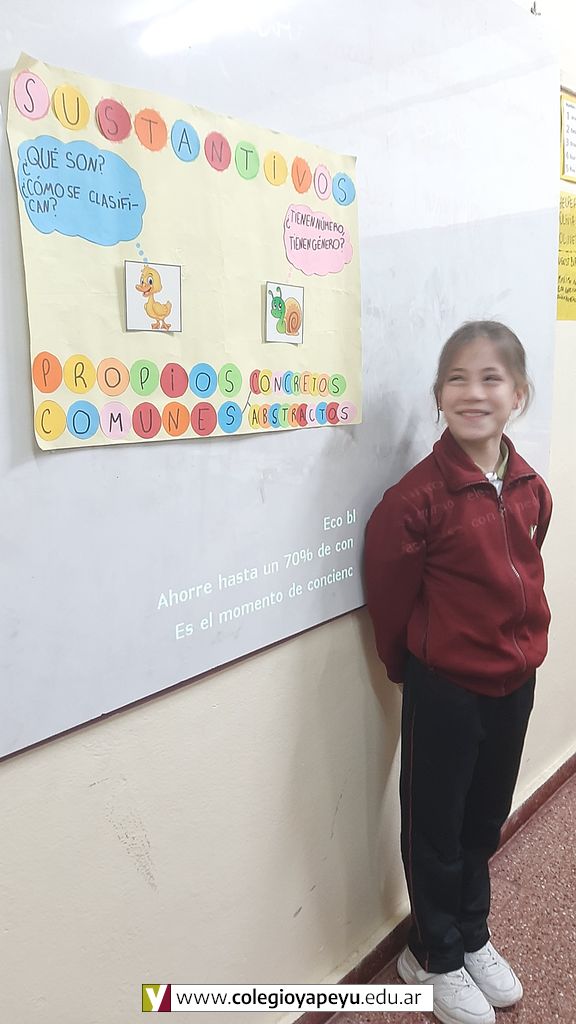 SUSTANTIVOS
¿QUÉ SON?
¿CÓMO SE CLASIFI-
CAN?
¿TIENEN NÚMERO,
TIENEN GÉNERO?
PROPIOS CONCRETOS
COMUNES ABSTRACTOS
Eco bl
Ahorre hasta un 70% de con
Es el momento de concienc
www.colegioyapeyu.edu.ar